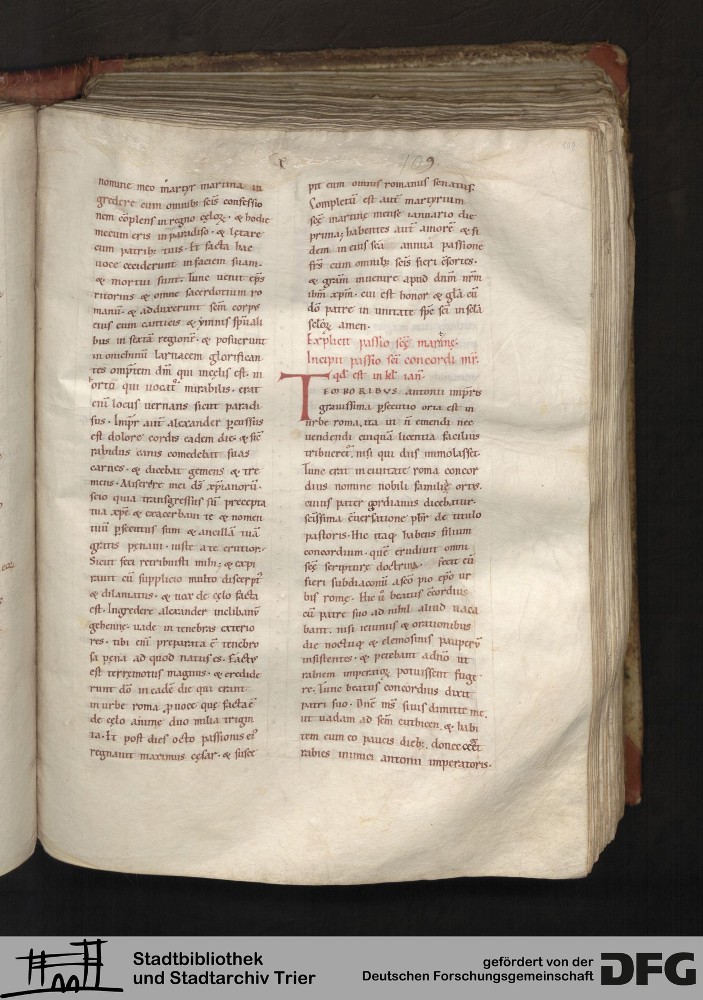 109
109
nomine meo martyr martina. in
gredere cum omnibꝫ scis confessio
nem cōplens in regno cęloꝝ. & hodie
mecum eris in paradiso. & lętare
cum patribꝫ tuis. Et facta hac
uoce ceciderunt in faciem suam.
& mortui sunt. Tunc uenit ep̄s
ritorius & omne sacerdotium ro
manū. & adduxerunt scm̄ corpꝰ
eius cum canticis & ymnis sp̄uali
bus in sextā regionē. & posuerunt
larnacem glorifican
tes omp̄tem dm̄ qui in cęlis est. in
ortū qui uocat᷑ mirabilis. erat
eni locus uernans sicut paradi
sus. Imp̄r aut̄ alexander ꝑcussus
est dolore cordis eadem die. & sic̄
rabidus canis comedebat suas
carnes. & dicebat gemens & tre
mens. Miserere mei ds̄ xp̄ianorū.
scio quia transgressus sū precepta
tua xp̄e & exacerbaui te & nomen
tuū ꝑsecutus sum & ancillā tuā
gratis peniui. iuste a te crucior.
Sicut feci retribuisti mihi; & expi
rauit cū supplicio multo discerpt᷑
& dilaniatus. & uox de cęlo facta
est. Ingredere alexander in clibanū
gehennę. uade in tenebras exterio
res. tibi eni preparata ē tenebro
sa pena ad quod natus es. Factꝰ
est terremotus magnus. & credide
runt dō in eadē die qui erant
in urbe roma ꝓ uoce quę facta ē
de cęlo anime duo milia trigin
ta. Et post dies octo passionis eiꝰ
regnauit maximus cęsar. & susce
pit eum omnis romanus senatus.
Completū est aut̄ martyrium
scę martinę mense ianuario die
prima; habentes aut̄ amorē & fi
dem in eius scā annua passione
frs̄ cum omnibꝫ scis fieri cōsortes.
& gram inuenire apud dnm̄ nrm̄
ihm̄ xp̄m. cui est honor & gla cū
dō patre in unitate sp̄s sci in scla
scloꝝ amen.
Explicit passio scę martinę.
Incipit passio sci concordi mr̄.
qd̄ est in kl̄ ian̄.
TEMPORIBUS. antonii imp̄ris
grauissima ꝑsecutio orta est in
urbe roma. ita ut n̄ emendi nec
uendendi cuiquā licentia facilius
tribueret᷑. nisi qui diis immolasset.
Tunc erat in ciuitate roma concor
dius nomine nobili familię ortꝰ.
cuius pater gordianus dicebatur.
scissima cōuersatione pbr̄ de titulo
pastoris. Hic itaꝗ habens filium
concordium. quē erudiuit omni
scę scripturę doctrina. fecit eū
fieri subdiaconū a sco pio ep̄o ur
bis romę. Hic u̅ beatus cōcordius
cū patre suo ad nihil aliud uaca
bant. nisi ieiuniis & orationibus
die noctuꝗ & elemosinis pauperū
insistentes. & petebant a dn̄o ut
rabiem imperator̄ potuissent fuge
re. Tunc beatus concordius dixit
patri suo. Dn̄e ms̄ si iusis dimitte me.
ut uadam ad scm̄ euthicen & habi
tem cum eo paucis diebꝫ. donec
rabies inimici antonii imperatoris.
Stadtbibliothek
und Stadtarchiv Trier
gefördert von der
Deutschen Forschungsgemeinschaft
DFG